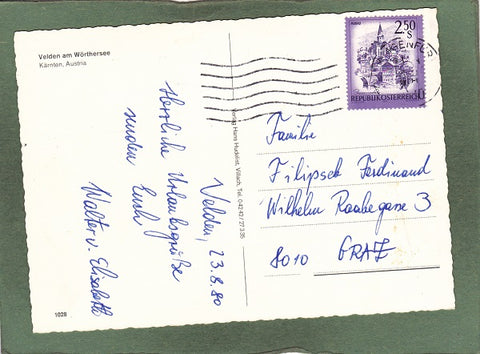 Velden am Wörthersee
Kärnten, Austria
Velden, 23.8.80
Herzliche Urlaubsgrüße
senden Euch
Walter u. Elisabeth
1028
Verlag Hans Hudelist, Villach, Tel. 04242/27335
2.50
S
REPUBLIK ÖSTERREICH
Familie
Filipsek Ferdinand
Wilhelm Raabegasse 3
8010 GRAZ